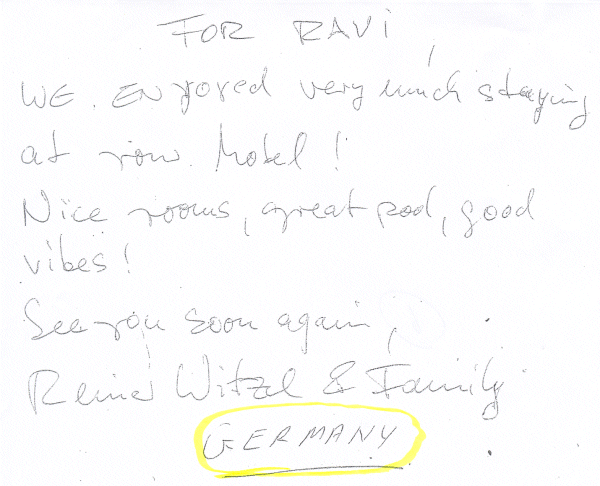 FOR RAVI,
WE ENjoyed very much staying
at your Motel!
Nice rooms, great pool, good
vibes!
See you soon again,
Reiner Witzel & Family
GERMANY